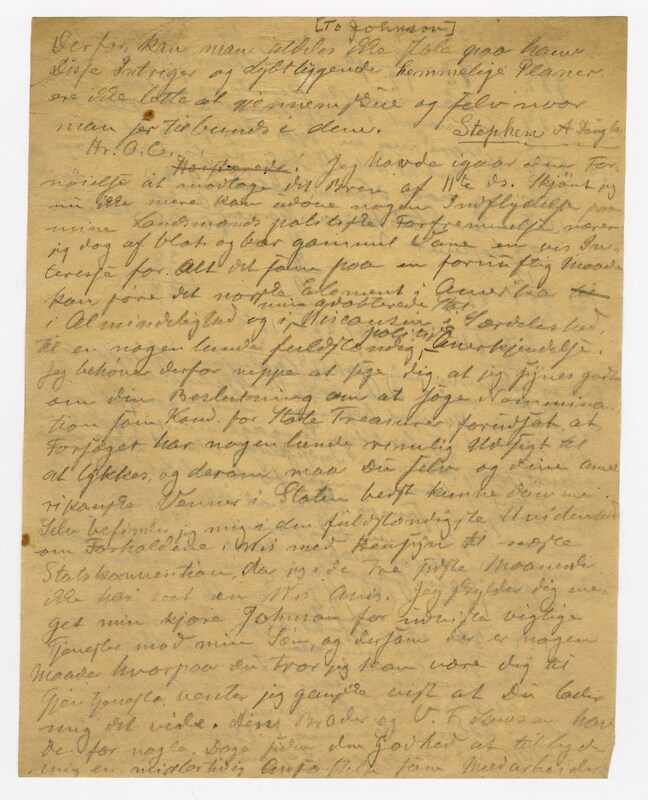 [To Johnson]
Derfor kan man aldeles ikke stole paa ham
Disse Intriger og dybtliggende hemmelige Planer
ere ikke lette at gjennemskue og selv naar
man ser tilbunds i dem. Stephen A Douglas
Hr. O. C.
Høistærede! Jeg havde igaar den For-
nøielse at modtage dit Brev af 11te ds. Skjønt jeg
nu ikke mere kan udøve nogen Indflydelse paa
mine Landsmænds politiske Forfremmelse nærer
jeg dog af blot og bar gammel Vane en vis In-
teresse for Alt det som paa en fornuftig Maade
kan føre det norske Element i Amerika
i Almindelighed og i min adopterede Stat Wisconsin i Særdeleshed,
til en nogenlunde fuldstændig politisk Anerkjendelse.
Jeg behøver derfor neppe at sige dig, at jeg synes godt
om din Beslutning om at søge Nomina-
tion som Kand. for State Treasurer forudsat, at
Forsøget har nogenlunde rimelig Udsigt til
at lykkes, og derom maa Du selv og dine ame-
rikanske Venner i Staten bedst kunne dømme.
Selv befinder jeg mig i den fuldstændigste Uvidenhed
om Forholdene i Wis med Hensyn til næste
Statskonvention, da jeg i de tre sidste Maaneder
ikke har seet en Wis. Avis. Jeg skylder dig me-
get min kjære Johnson for udviste vigtige
Tjenester mod min Søn, og dersom der er nogen
Maade hvorpaa du tror jeg kan være dig til
Gjentjeneste, venter jeg ganske vist at Du lader
mig det vide. Din Broder og V. F. Lawson hav
de for nogle Dage siden den Godhed at tilbyde
mig en midlertidig som Medarbeider